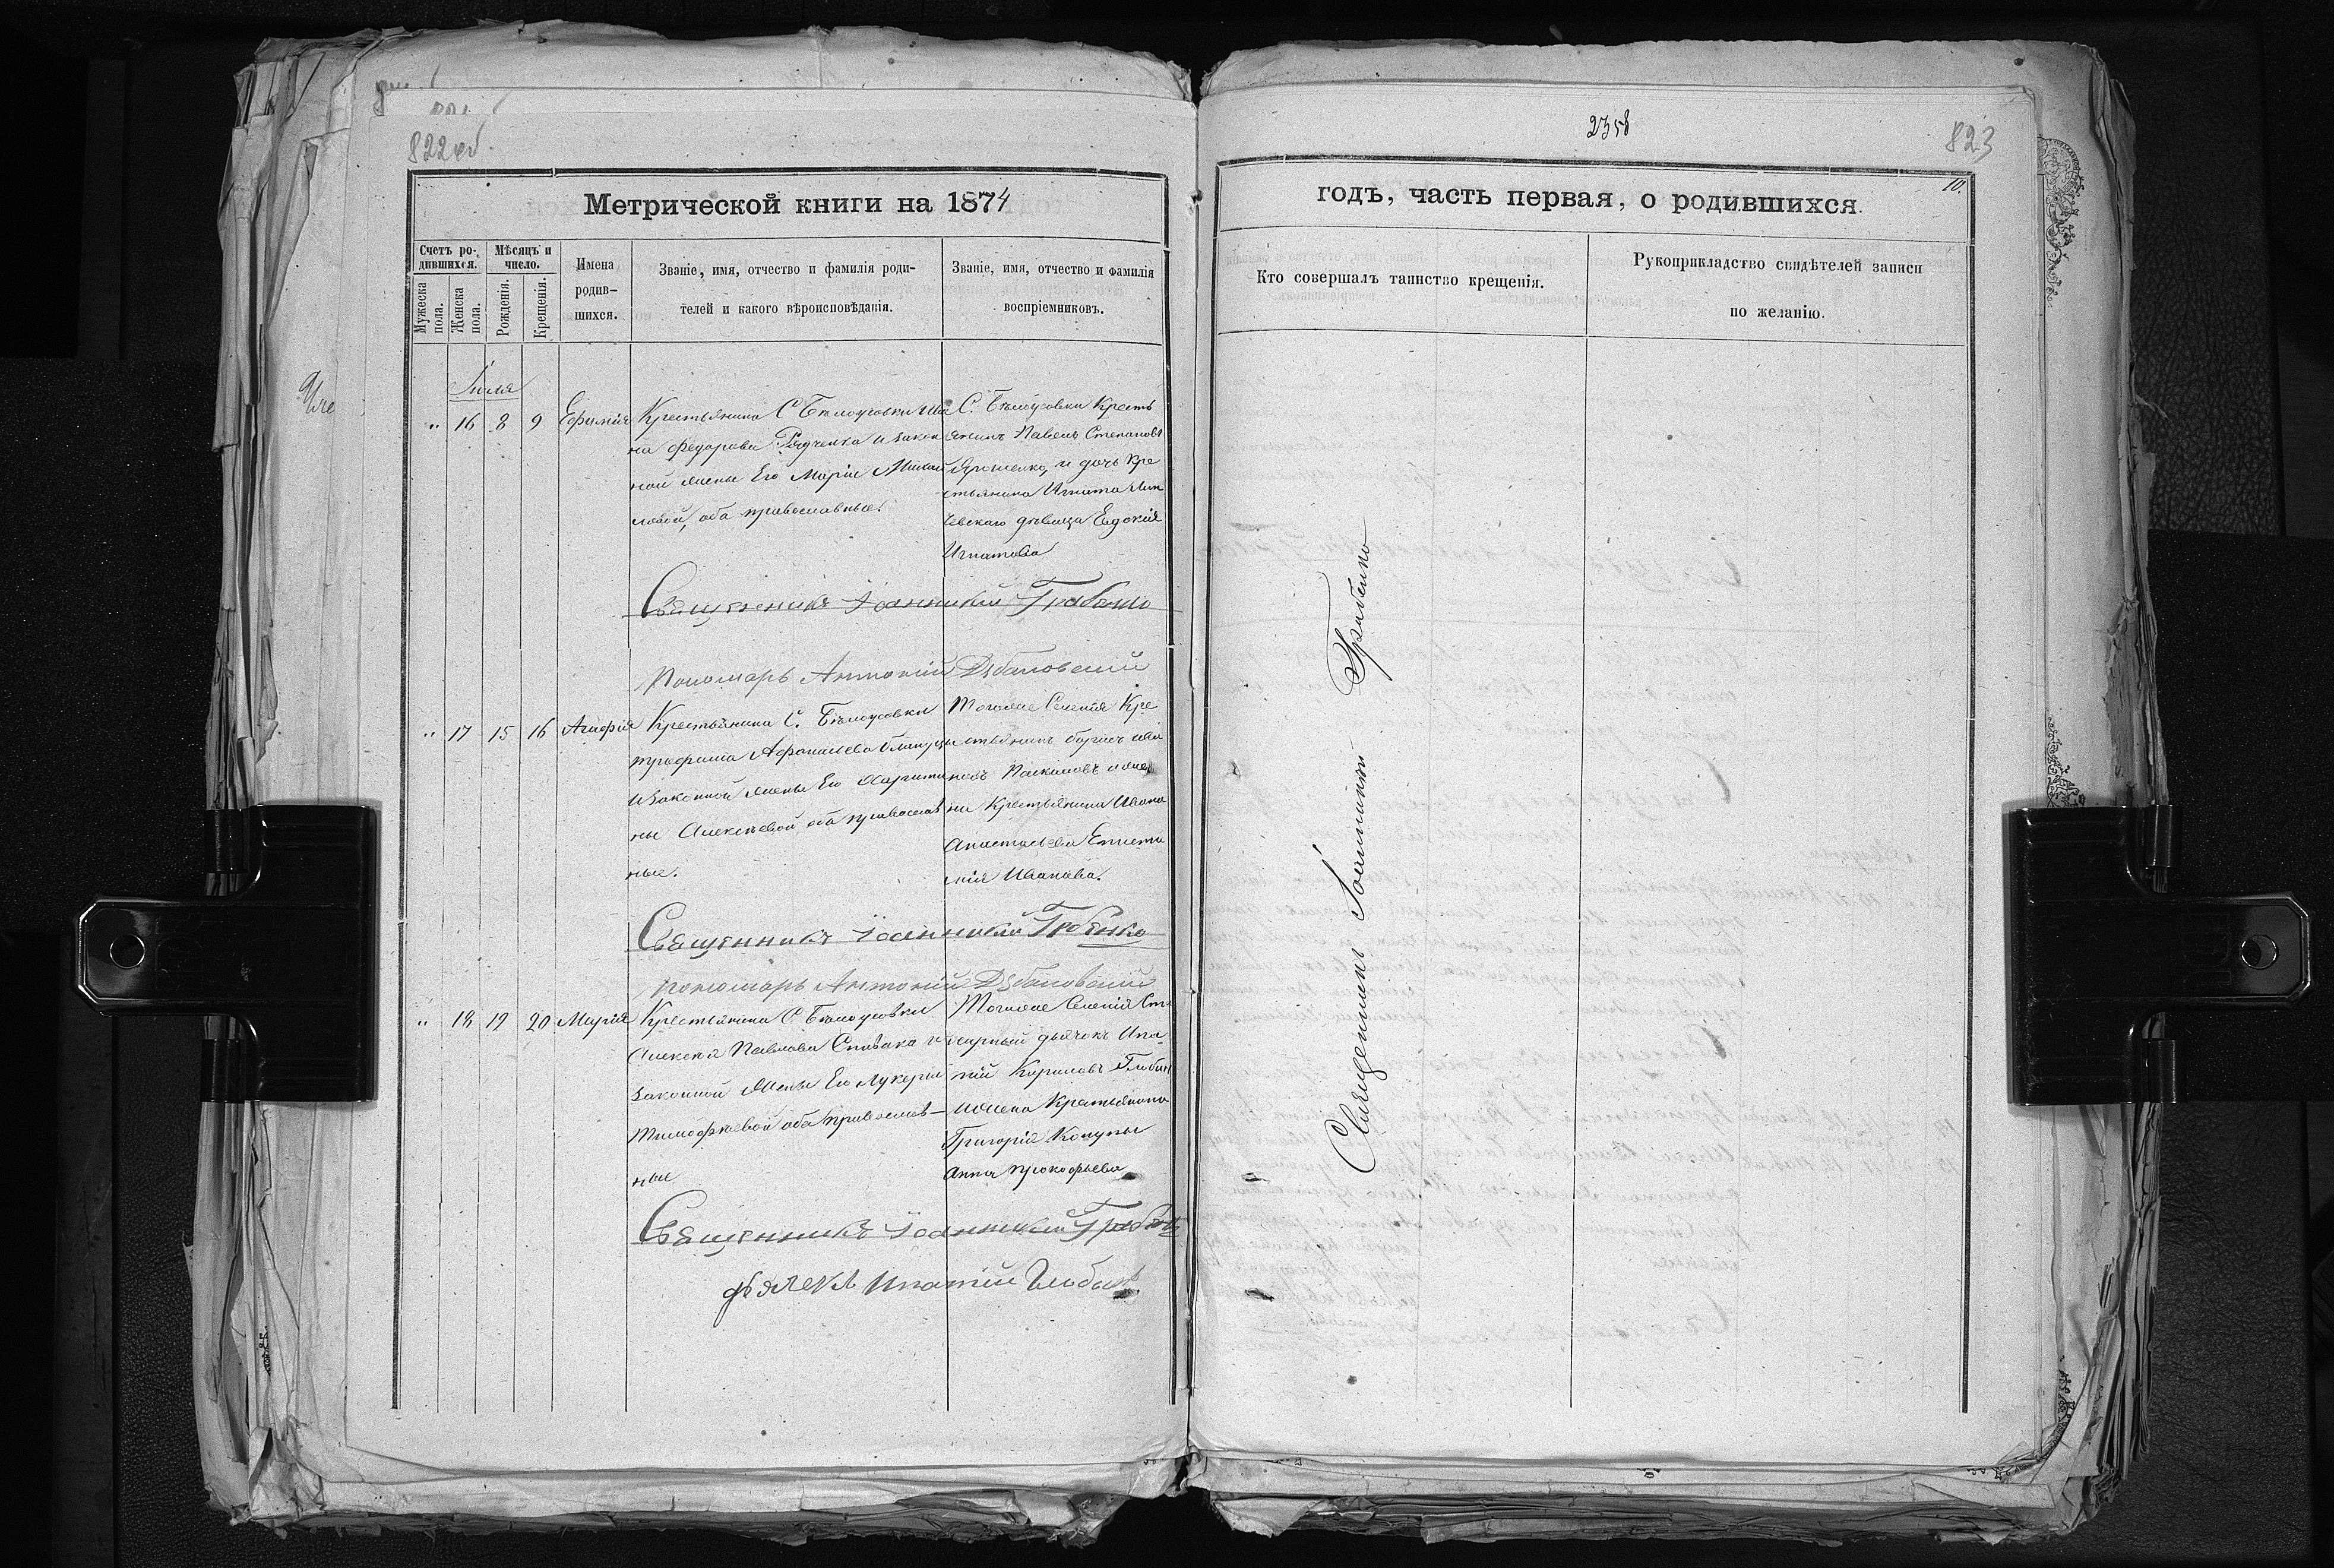 822 об.
Метрической книги на 1874
Счетъ ро-
дившихся.
Мѣсяцъ и
число.
Мужеска
пола.
Женска
пола.
Рожденія.
Крещенія.
Имена
родив-
шихся.
Званіе, имя, отчество и фамилія роди-
телей и какого вѣроисповѣданія.
Званіе, имя, отчество и фамилія
воспріемниковъ.
Іюля
" 16 8 9 Ефимія
Крестьянина С Бѣлоусовки Ива
на Федорова Рядченка и закон
ной жены Его Маріи Михай
ловой, оба православные.
С. Бѣлоусовки Кресть
янинъ Павелъ Степановъ
Ярошенко, и дочь Кре
стьянина Игната
девица Евдокія
Игнатова
Священникъ Іоанникій Грабенко
Пономарь Антоній Дзбановскій
" 17 15 16 Агафія
Крестьянина С. Бѣлоусовки
Трофима Афанасьева
и законной жены Его Харити
ны Алексѣевой оба православ
ные.
Тогоже Селенія Кре
стьянинъ Борисъ Ива
новъ и же
на Крестьянина Ивана
Еписта
мія Иванова.
Священникъ Іоанникій Грабенко
пономарь Антоній Дзбановскій
" 18 19 20 Марія
Крестьянина С. Бѣлоусовки
Алексѣя Павлова Співака и
законной жены Его Лукеріи
Тимофѣевой оба православ-
ные
Тогоже Селенія
дьячокъ Ипа
тій Кириловъ
и жена Крестьянина
Григорія
Анна Прокофьева
Священникъ Іоанникій
дьячекъ Ипатій
2358
823
10.
годъ, часть первая, о родившихся.
Кто совершалъ таинство крещенія.
Рукоприкладство свидѣтелей записи
по желанію.
Священникъ Іоанникій Грабенко